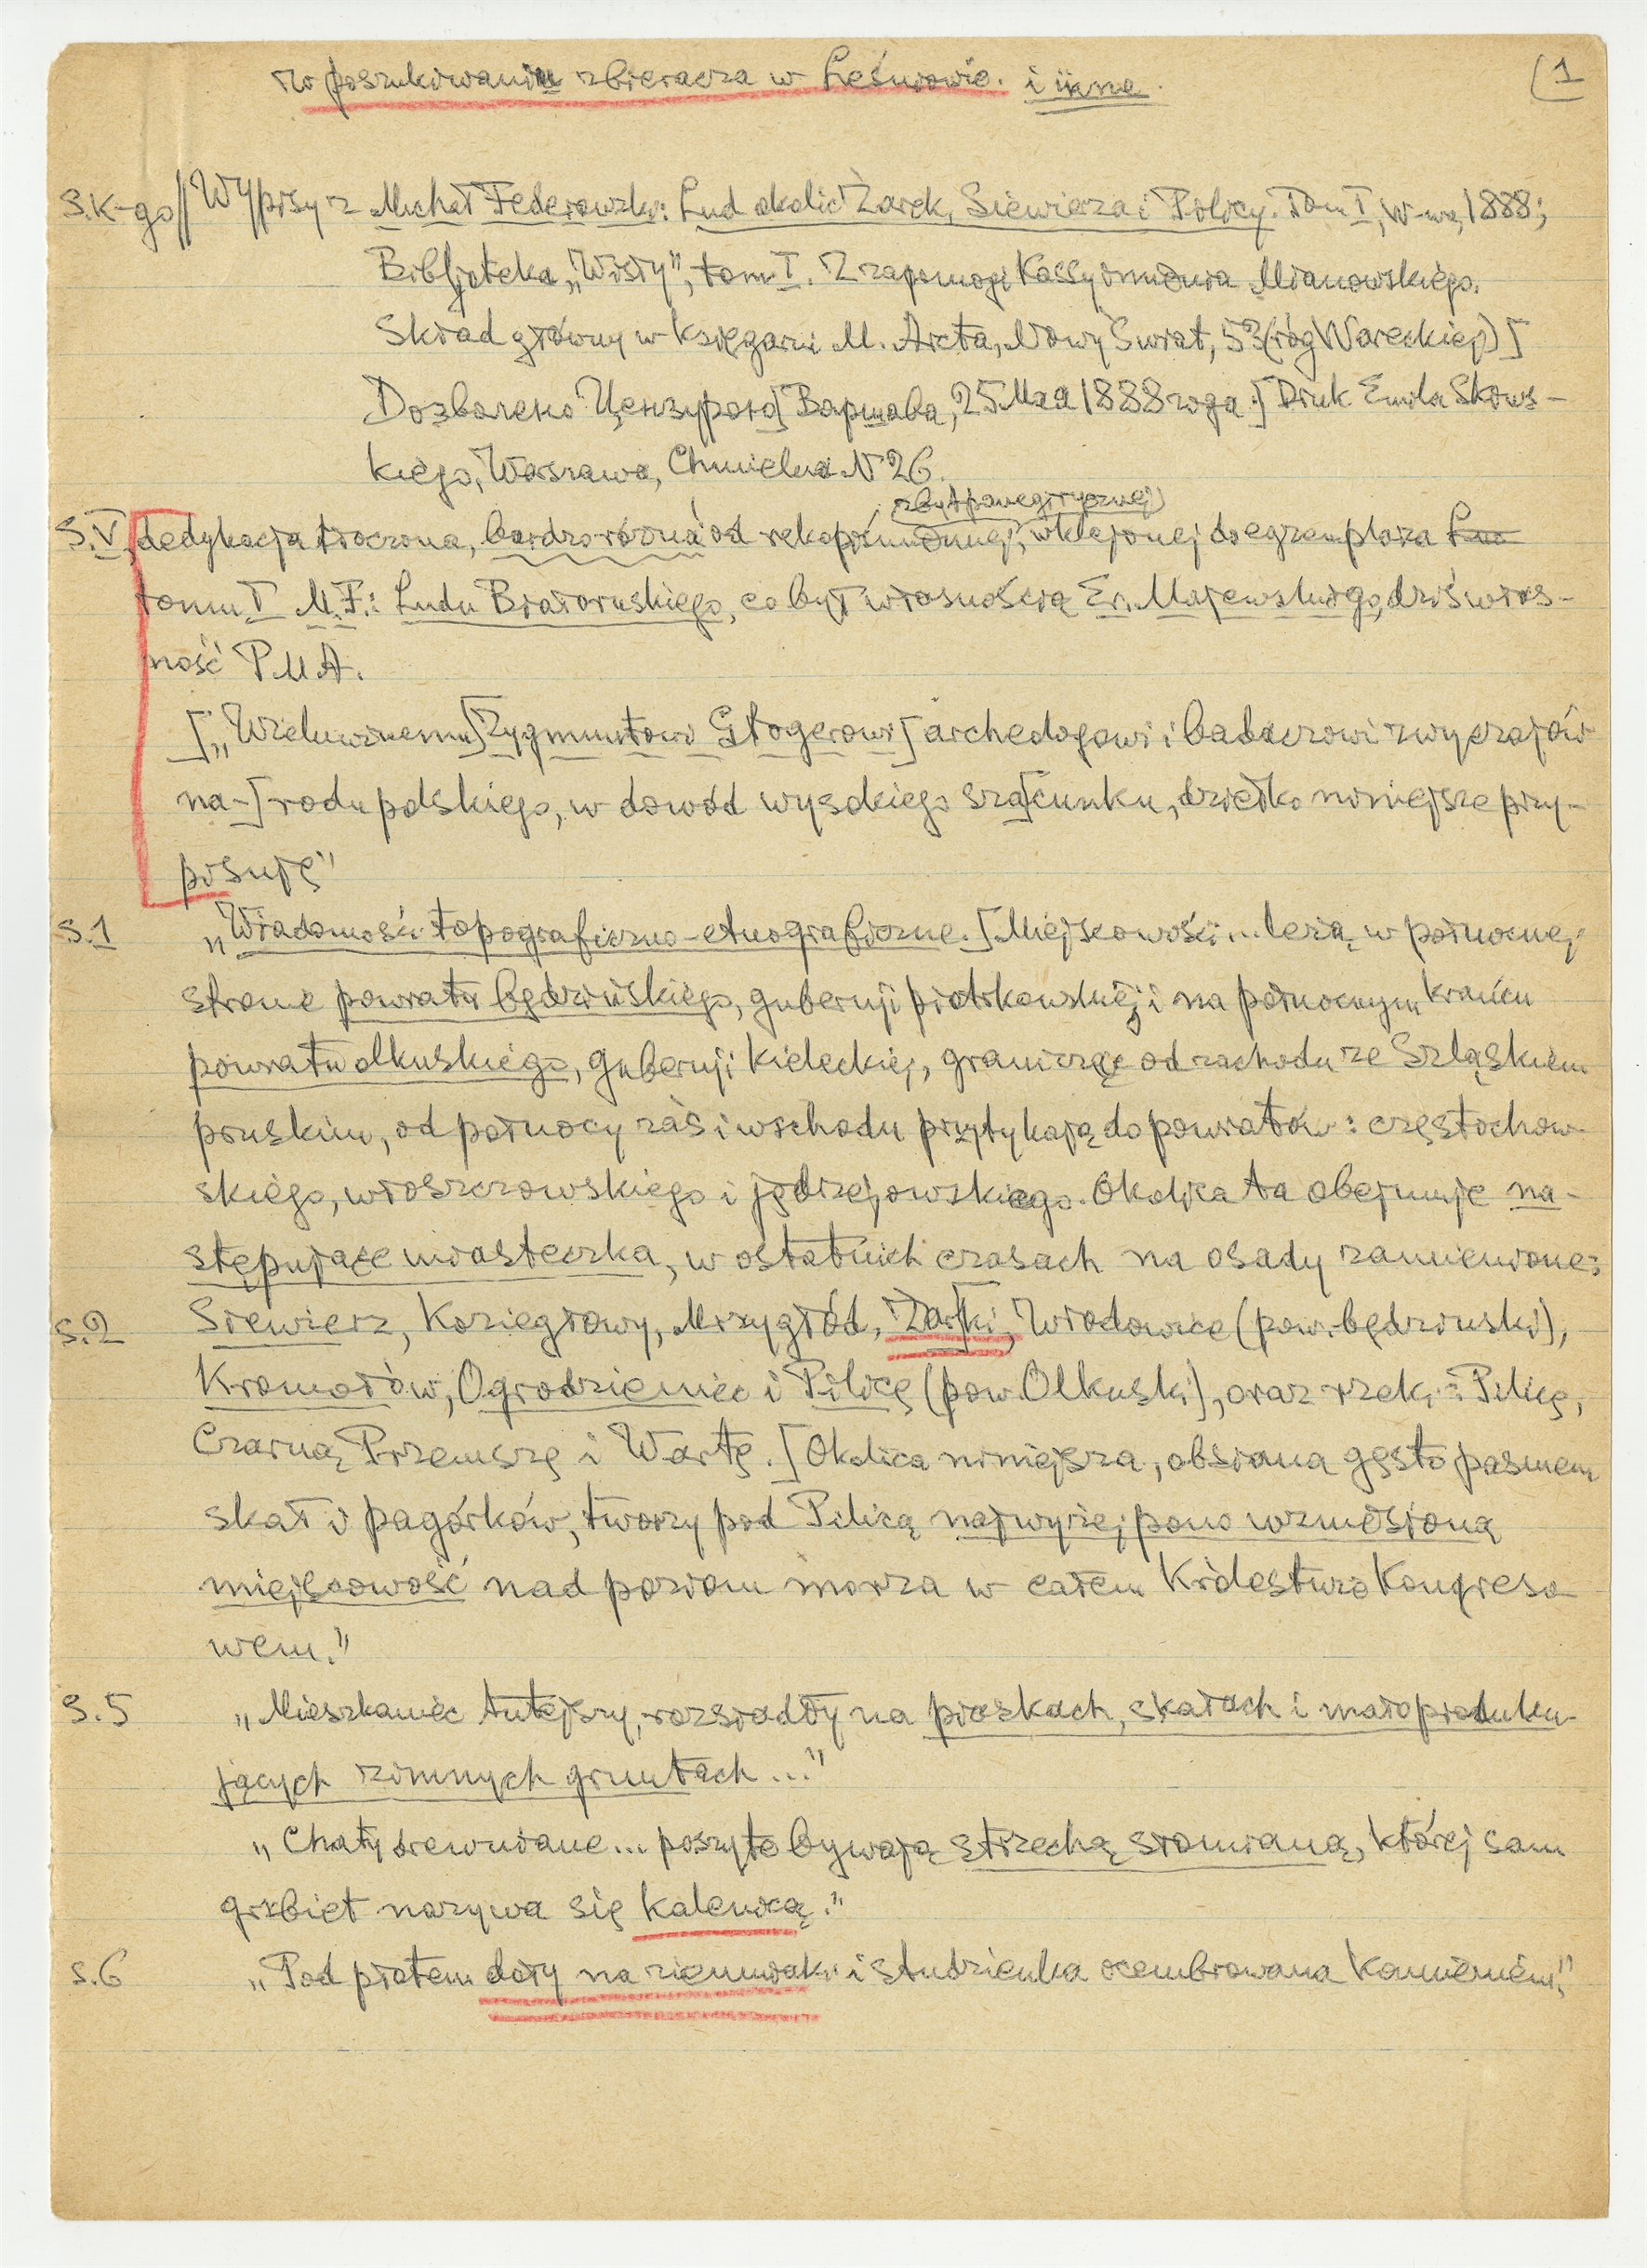 w poszukiwaniu zbieracza w Leśniowie. i inne. (1
S.K-go // Wypisy z Michał Federowski: Lud okolic Żarek, Siewierza i Pilicy. Tom I, W-wa, 1888;
Bibljoteka „Wisły”, tom I. Z zapomogi Kassy imienia Mianowskiego.
Skład główny w Księgarni M. Arcta, Nowy Świat, 53 (róg Wareckiej)]
Дозволено Цензурою] Варшава, 25 Мая 1888 года.] Druk Emila Skiws-
kiego, Warszawa, Chmielna N 26.
zbyt panegirycznej
S.V, dedykacja tłoczona, bardzo różna od rękopiśmiennej, wklejonej do egzemplarza
tomu I M.F.: Ludu Białoruskiego, co był własnością Er. Majewskiego, dziś włas-
ność P M A.
[„Wielmożnemu] Zygmuntowi Glogerowi] archeologowi i badaczowi zwyczajów
na-] rodu polskiego, w dowód wysokiego sza]cunku, dziełko niniejsze przy-
pisuję”
S.1 „Wiadomości topograficzno-etnograficzne. [Miejscowości... leżą w północnej
stronie powiatu będzińskiego, gubernji piotrkowskiej i na północnym krańcu
powiatu olkuskiego, gubernji kieleckiej, granicząc od zachodu ze Szląskiem
pruskim, od północy zaś i wschodu przytykają do powiatów: częstochow-
skiego, włoszczowskiego i jędrzejowskiego. Okolica ta obejmuje na-
stępujące miasteczka, w ostatnich czasach na osady zamienione:
S.2 Siewierz, Koziegłowy, Mrzygłód, Żar[ki, Włodowice (pow. będziński),
Kromołów, Ogrodzieniec i Pilicę (pow. Olkuski), oraz rzeki: Pilicę,
Czarną Przemszę i Wartę. [Okolica niniejsza, obsiana gęsto pasmem
skał i pagórków, tworzy pod Pilicą najwyżej pono wzniesioną
miejscowość nad poziom morza w całem Królestwie Kongreso
wem.”
S.5 „Mieszkaniec tutejszy, rozsiadły na piaskach, skałach i mało produku-
jących zimnych gruntach...”
„Chaty drewniane... poszyte bywają strzechą słomianą, której sam
grzbiet nazywa się kalenicą.”
S.6 „Pod płotem doły na ziemniaki i studzienka ocembrowana kamieniem”,